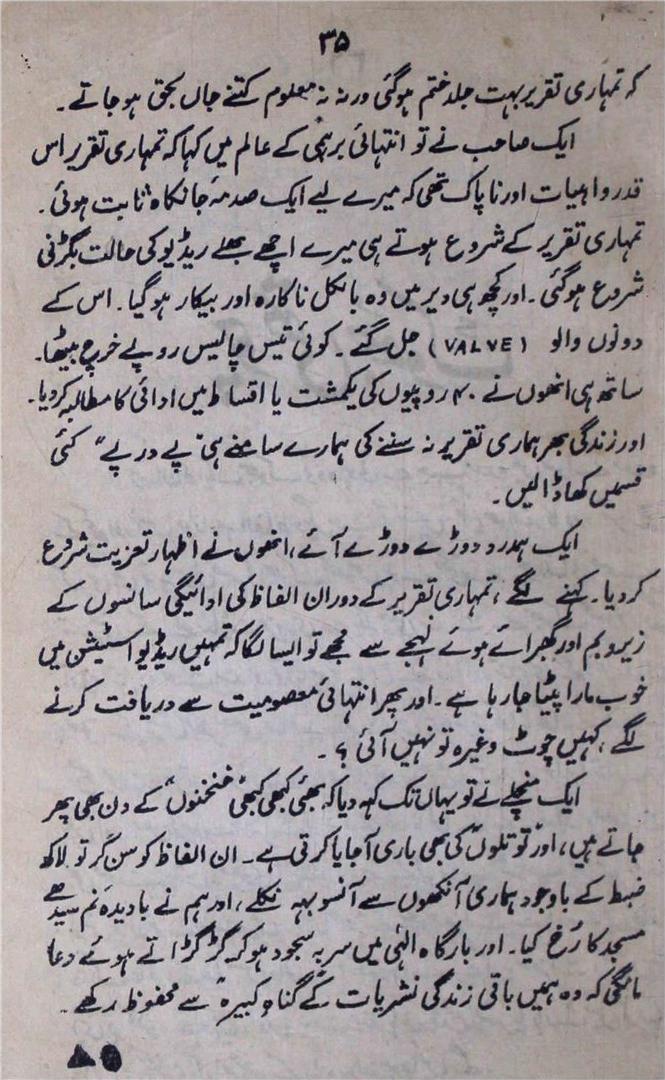 ۳۵
کہ تمہاری تقریر بہت جلد ختم ہوگئی ورنہ نہ معلوم کتنے جاں بحق ہوجاتے۔
ایک صاحب نے تو انتہائی برہمی کے عالم میں کہا کہ تمہاری تقریر اس
قدر واہیات اور ناپاک تھی کہ میرے لیے ایک صدمۂ جانکاہ ثابت ہوئی۔
تمہاری تقریر کے شروع ہوتے ہی میرے اچھے بھلے ریڈیو کی حالت بگڑنی
شروع ہوگئی۔ اور کچھ ہی دیر میں وہ بالکل ناکارہ اور بیکار ہوگیا۔ اس کے
دونوں والو (VALVE) جل گئے۔ کوئی تیس چالیس روپے خرچ بیٹھا۔
ساتھ ہی انھوں نے ۴۰ روپیوں کی یکمشت یا اقساط میں ادائی کا مطالبہ کردیا۔
اور زندگی بھر ہماری تقریر نہ سننے کی ہمارے سامنے ہی "پے در پے" کئی
قسمیں کھا ڈالیں۔
ایک ہمدرد دوڑے دوڑے آئے، انھوں نے اظہار تعزیت شروع
کردیا۔ کہنے لگے، تمہاری تقریر کے دوران الفاظ کی ادائیگی سانسوں کے
زیر و بم اور گھبرائے ہوئے لہجے سے مجھے تو ایسا لگا کہ تمہیں ریڈیو اسٹیشن میں
خوب مارا پیٹا جا رہا ہے۔ اور پھر انتہائی معصومیت سے دریافت کرنے
لگے، کہیں چوٹ وغیرہ تو نہیں آئی؟۔
ایک منچلے نے تو یہاں تک کہہ دیا کہ بھئی کبھی کبھی "خنخنوں" کے دن بھی پھر
جاتے ہیں، اور "توتلوں" کی بھی باری آجایا کرتی ہے۔ ان الفاظ کو سن کر تو لاکھ
ضبط کے باوجود ہماری آنکھوں سے آنسو بہہ نکلے، اور ہم نے بادیدۂ نم سیدھے
مسجد کا رُخ کیا۔ اور بارگاہ الہٰی میں سر بہ سجود ہوکر گڑگڑاتے ہوئے دعا
مانگی کہ وہ ہمیں باقی زندگی نشریات کے "گناہِ کبیرہ" سے محفوظ رکھے۔